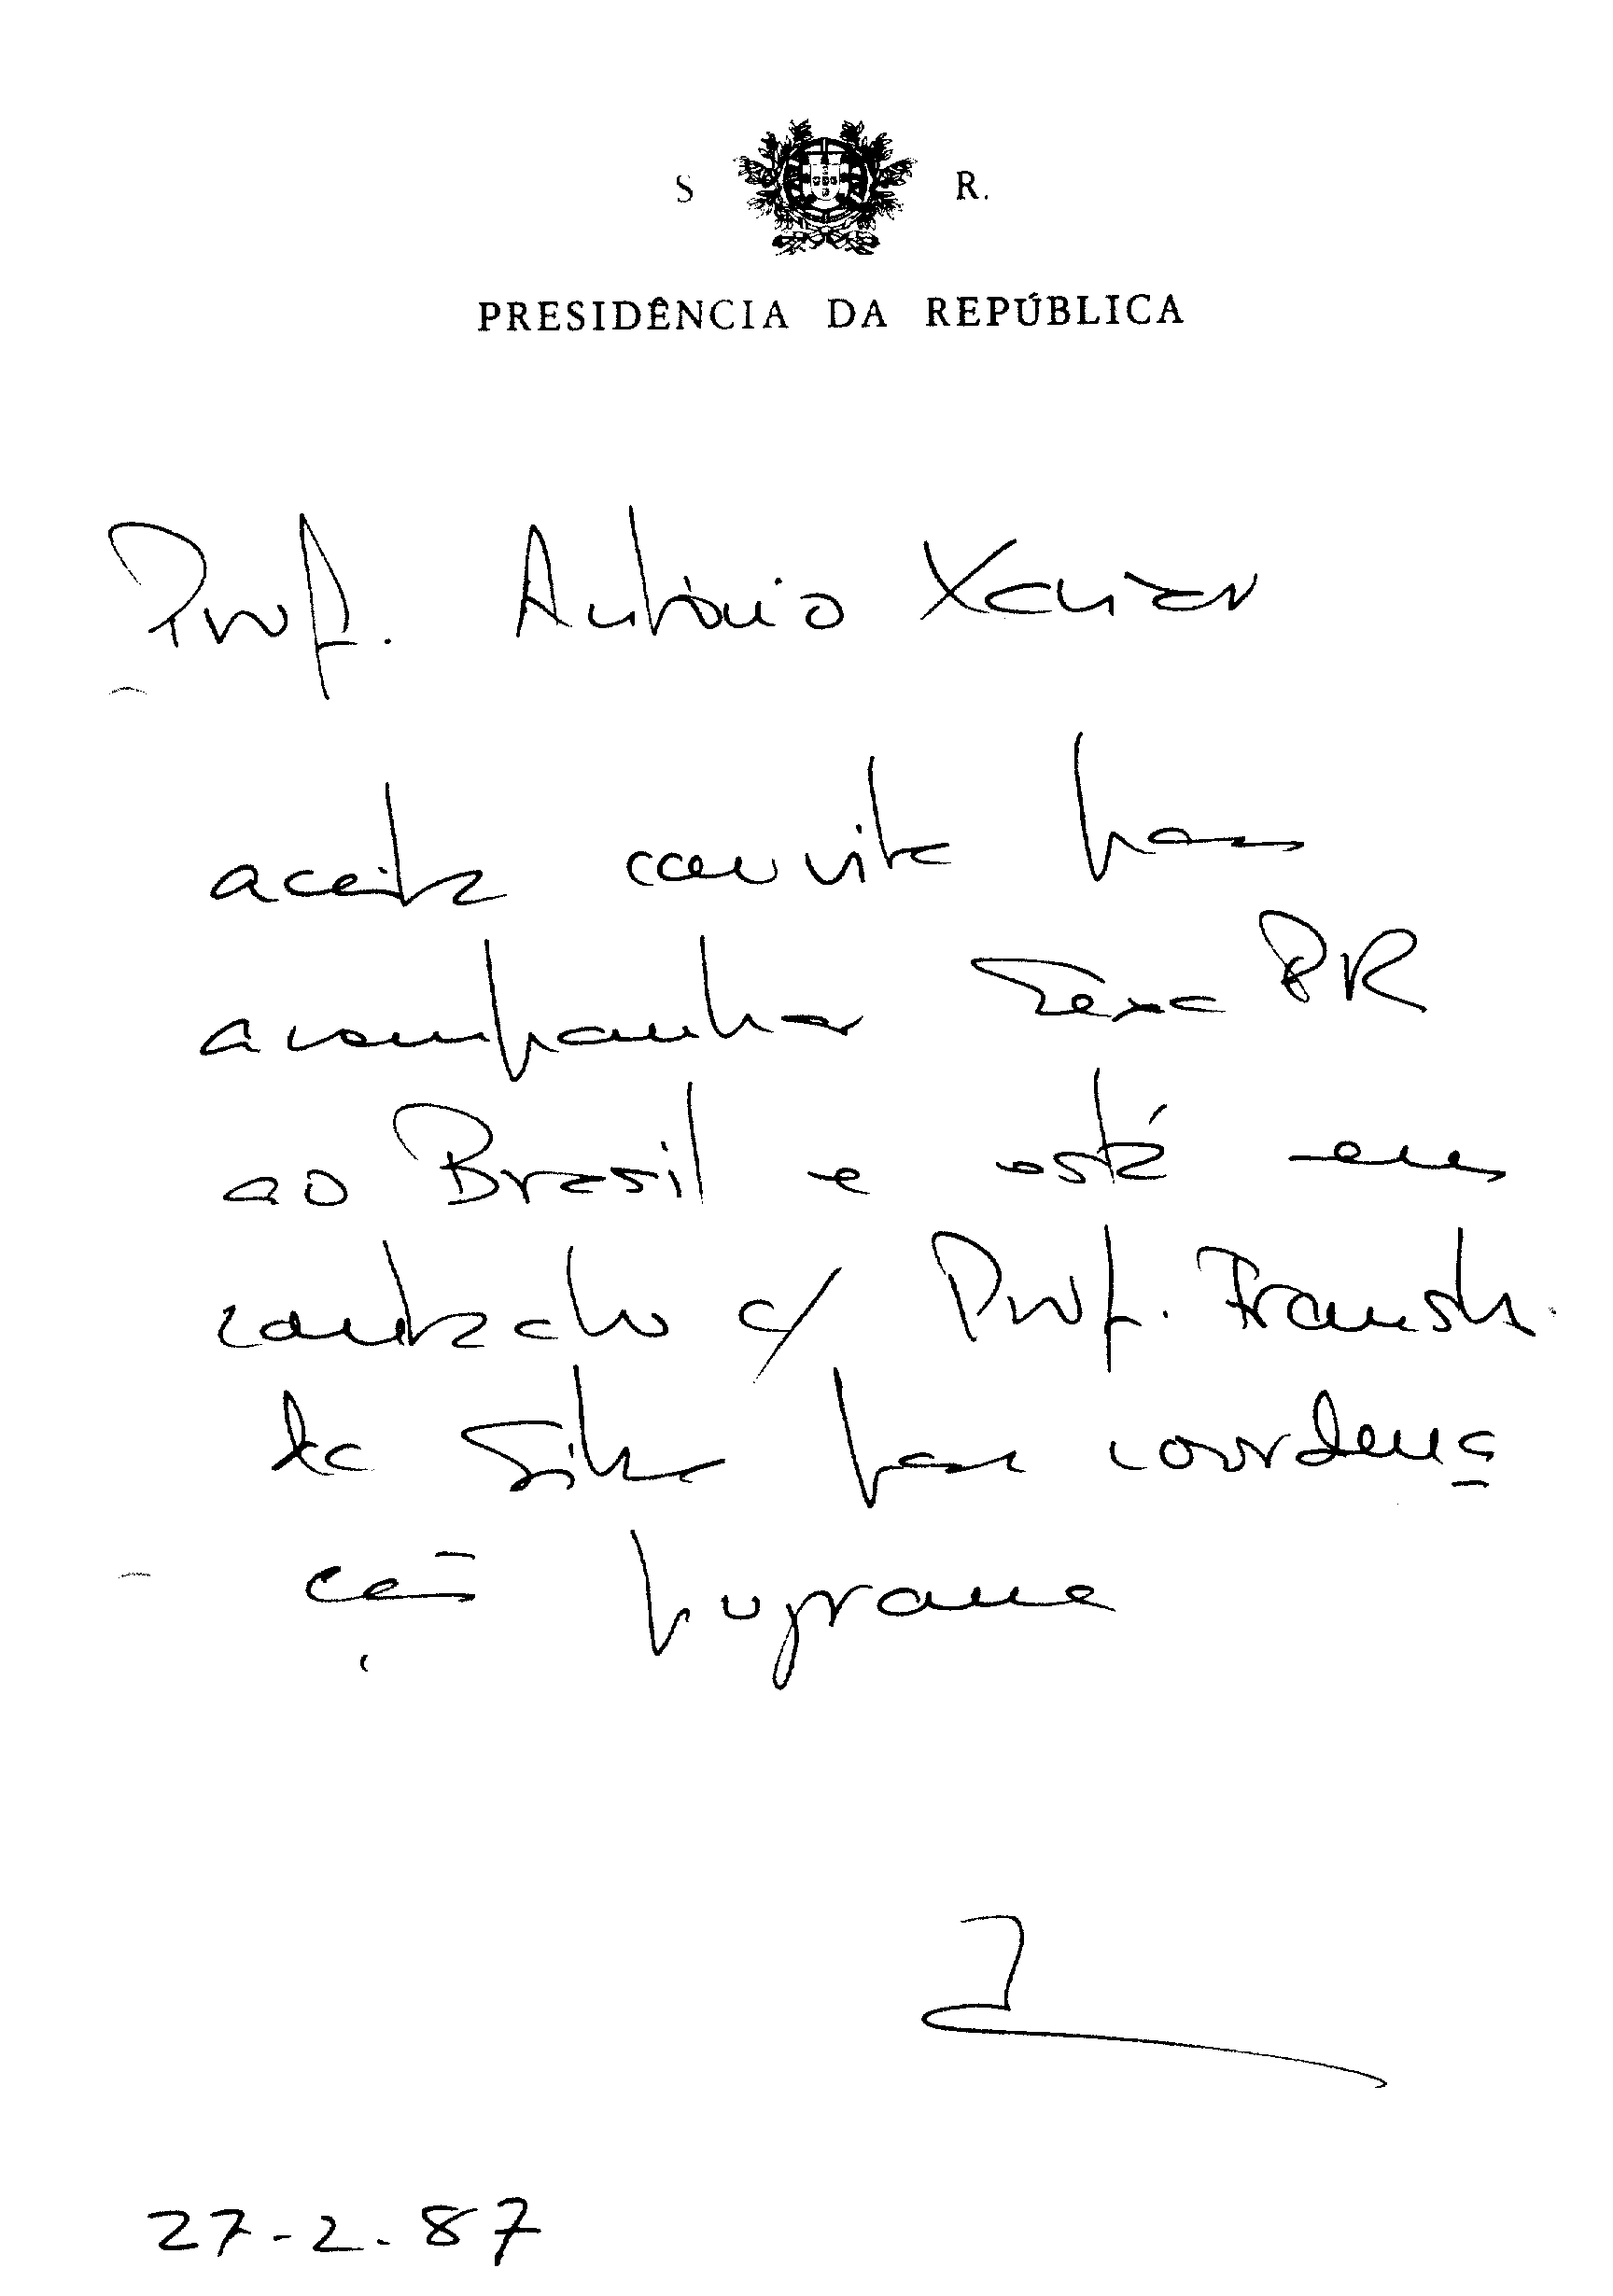 S R.
PRESIDÊNCIA DA REPÚBLICA
Prof. António Xavier
aceita convite para
acompanhar Sexa PR
ao Brasil e está em
contacto c/ Prof.
da Silva para coordena
ção programa
27-2.87